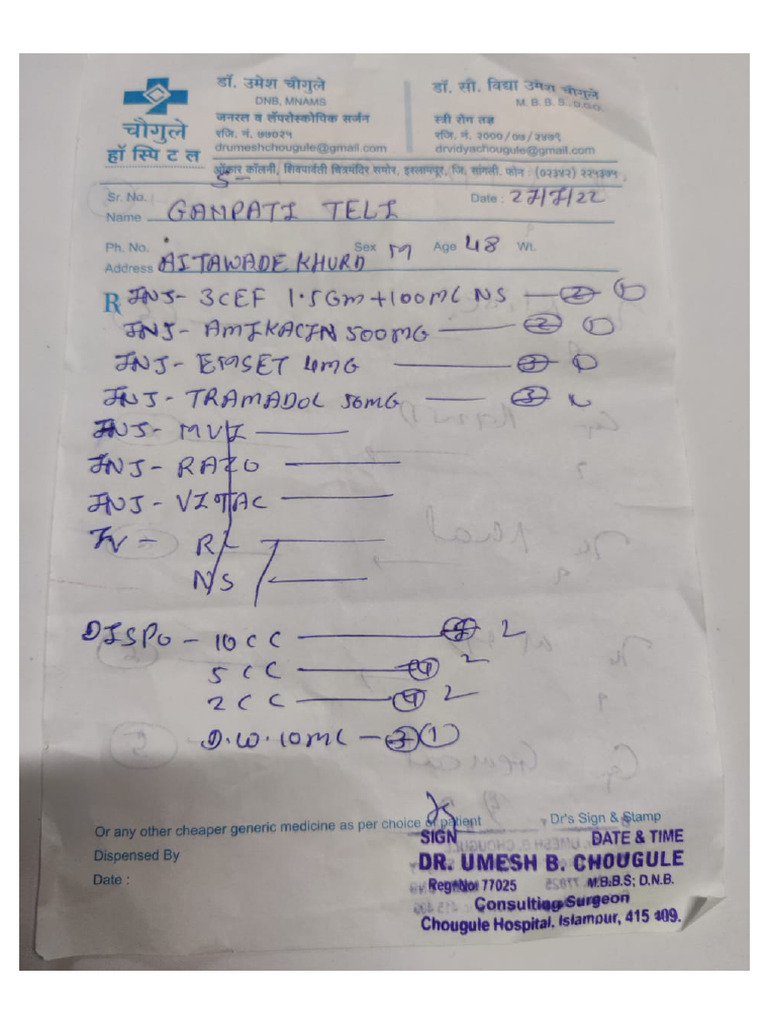 चौगुले
हॉस्पिटल
डॉ. उमेश चौगुले
DNB, MNAMS
जनरल व लॅपरोस्कोपिक सर्जन
रजि. नं. ७७०२५
drumeshchougule@gmail.com
डॉ. सौ. विद्या उमेश चौगुले
M.B.B.S., D.G.O.
स्त्री रोग तज्ञ
रजि. नं. २०००/०७/२४७९
drvidyachougule@gmail.com
ओंकार कॉलनी, शिवपार्वती चित्रमंदिर समोर, इस्लामपूर, जि. सांगली. फोन : (०२३४२) २२५३७५
Sr. No. Date : 27/7/22
Name GAMPATI TELI
Ph. No. Sex M Age 48 Wt.
Address AITAWADE KHURD
R INJ- 3CEF 1.5GM+100ML NS — 2 1
INJ- AMIKACIN 500MG — 2 1
INJ- EMSET 4MG — 3 1
INJ- TRAMADOL 50MG — 3
INJ- MVI —
INJ- RAZO —
INJ- VITAC —
IV - RL —
NS —
DISPO - 10 CC — 2
5 CC — 4 2
2 CC — 4 2
D.W. 10ML - 3 1
Or any other cheaper generic medicine as per choice of patient Dr's Sign & Stamp
Dispensed By
Date :
SIGN DATE & TIME
DR. UMESH B. CHOUGULE
Regt No: 77025 M.B.B.S; D.N.B.
Consulting Surgeon
Chougule Hospital, Islampur, 415 409.